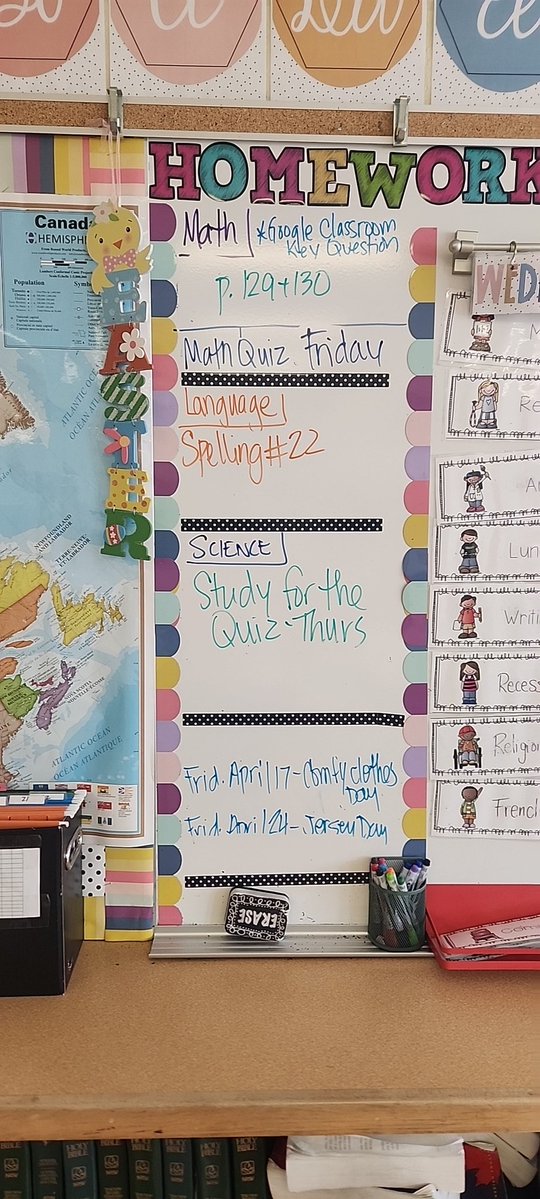 HOMEWORK
Canada
HEMISPH
Population
ATLANTIC OC
OCÉAN
EASTER
Math *Google Classroom
Key Question
p. 129+130
Math Quiz. Friday
Language
Spelling #22
SCIENCE
Study for the
Quiz-Thurs
Frid. April 17-Comfy clothes
Day
Frid. April 24-Jersey Day
ERASE
NEWFOUNDLAND
AND LABRADOR
ATLANTIC OCEAN
OCÉAN ATLANTIQUE
WED
M
Re
Ar
Lun
Writi
Recess
Religio
French
HOLY
BIBLE